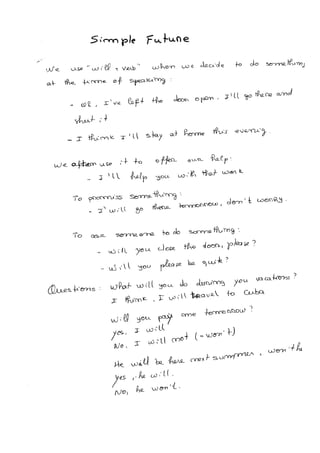 Simple Future
We use "will + verb" when we decide to do something
at the time of speaking :
- oh, I've left the door open. I'll go there and
shut it
- I think I'll stay at home this evening
We often use it to offer our help :
- I'll help you with that work
To promiss something :
- I will go there tomorrow, don't worry.
To ask someone to do something :
- will you close the door, please ?
- will you please be quit ?
Questions : What will you do during you vacations ?
I think, I will travel to Cuba
Will you pay me tomorrow ?
Yes, I will
No, I will not (= won't)
He will be here next summer, won't he
Yes, he will.
No, he won't.